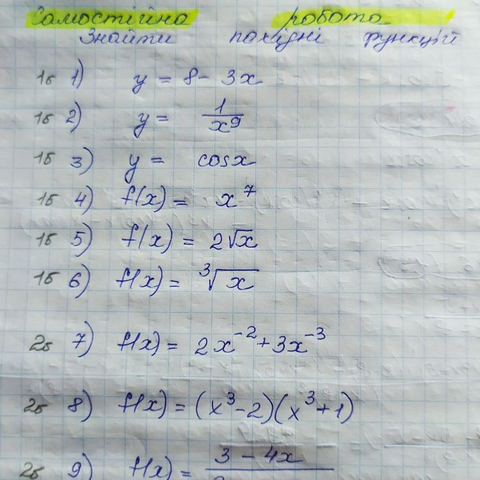 Самостійна робота
Знайти похідні функцій
1б 1) y = 8 - 3x
1б 2) y = 1/x⁹
1б 3) y = cosx
1б 4) f(x) = x⁷
1б 5) f(x) = 2√x
1б 6) f(x) = ³√x
2б 7) f(x) = 2x⁻² + 3x⁻³
2б 8) f(x) = (x³-2)(x³+1)
2б 9) f(x) = 3 - 4x